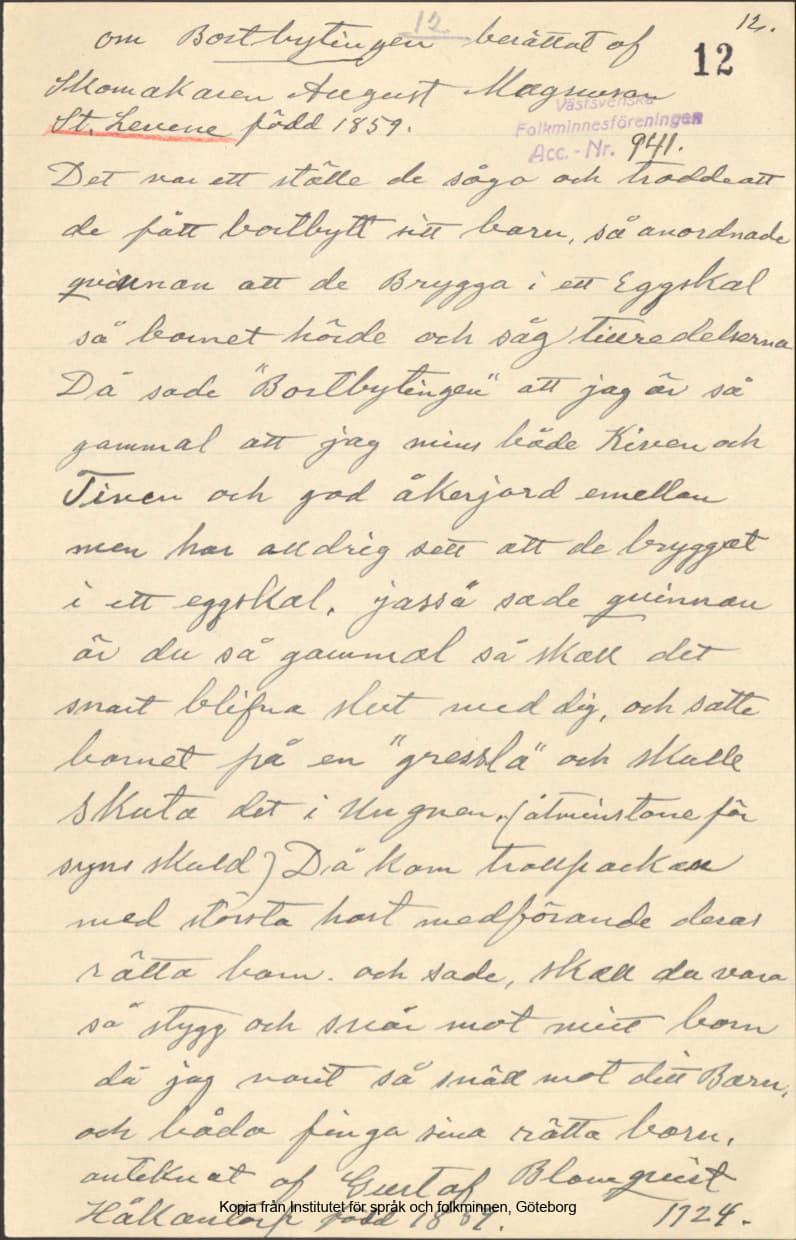 12 12.
om Bortbytingen berättat af
12
Skomakaren August Magnuson
Västsvenska
Folkminnesföreningen
Acc. - Nr. 941.
St. Levene född 1859.
Det var ett ställe de sågo och trodde att
de fått bortbytt sitt barn, så anordnade
qvinnan att de Brygga i ett Eggskal
så barnet hörde och såg tillredelserna
Då sade "Bortbytingen" att jag är så
gammal att jag mins både Kiven och
Tiven och god åkerjord emellan
men har alldrig sett att de bryggat
i ett eggskal, jasså sade qvinnan
är du så gammal så skall det
snart blifva slut med dig, och satte
barnet på en "gressla" och skulle
skuta det i Ungnen. (åtminstone för
syns skuld) Då kom trollpackan
med största hast medförande deras
rätta barn. och sade, skall du vara
så stygg och svår mot mitt barn
då jag varit så snäll mot ditt Barn,
och båda finga sina rätta barn.
anteknat af Gustaf Blomquist
Håkantorp född 18 1924.
Kopia från Institutet för språk och folkminnen, Göteborg